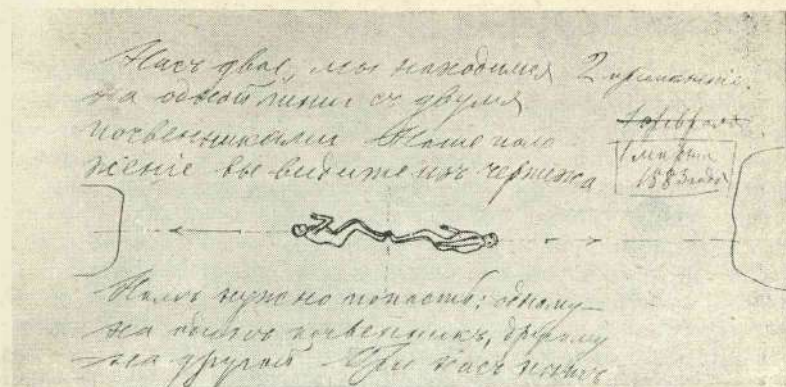 Насъ двое, мы находимся
на одной линіи съ двумя
почвенниками Наше поло-
женіе вы видите изъ чертежа
1 марта
1883 года
Намъ нужно попасть: одному
на одинъ почвенникъ, другому
на другой